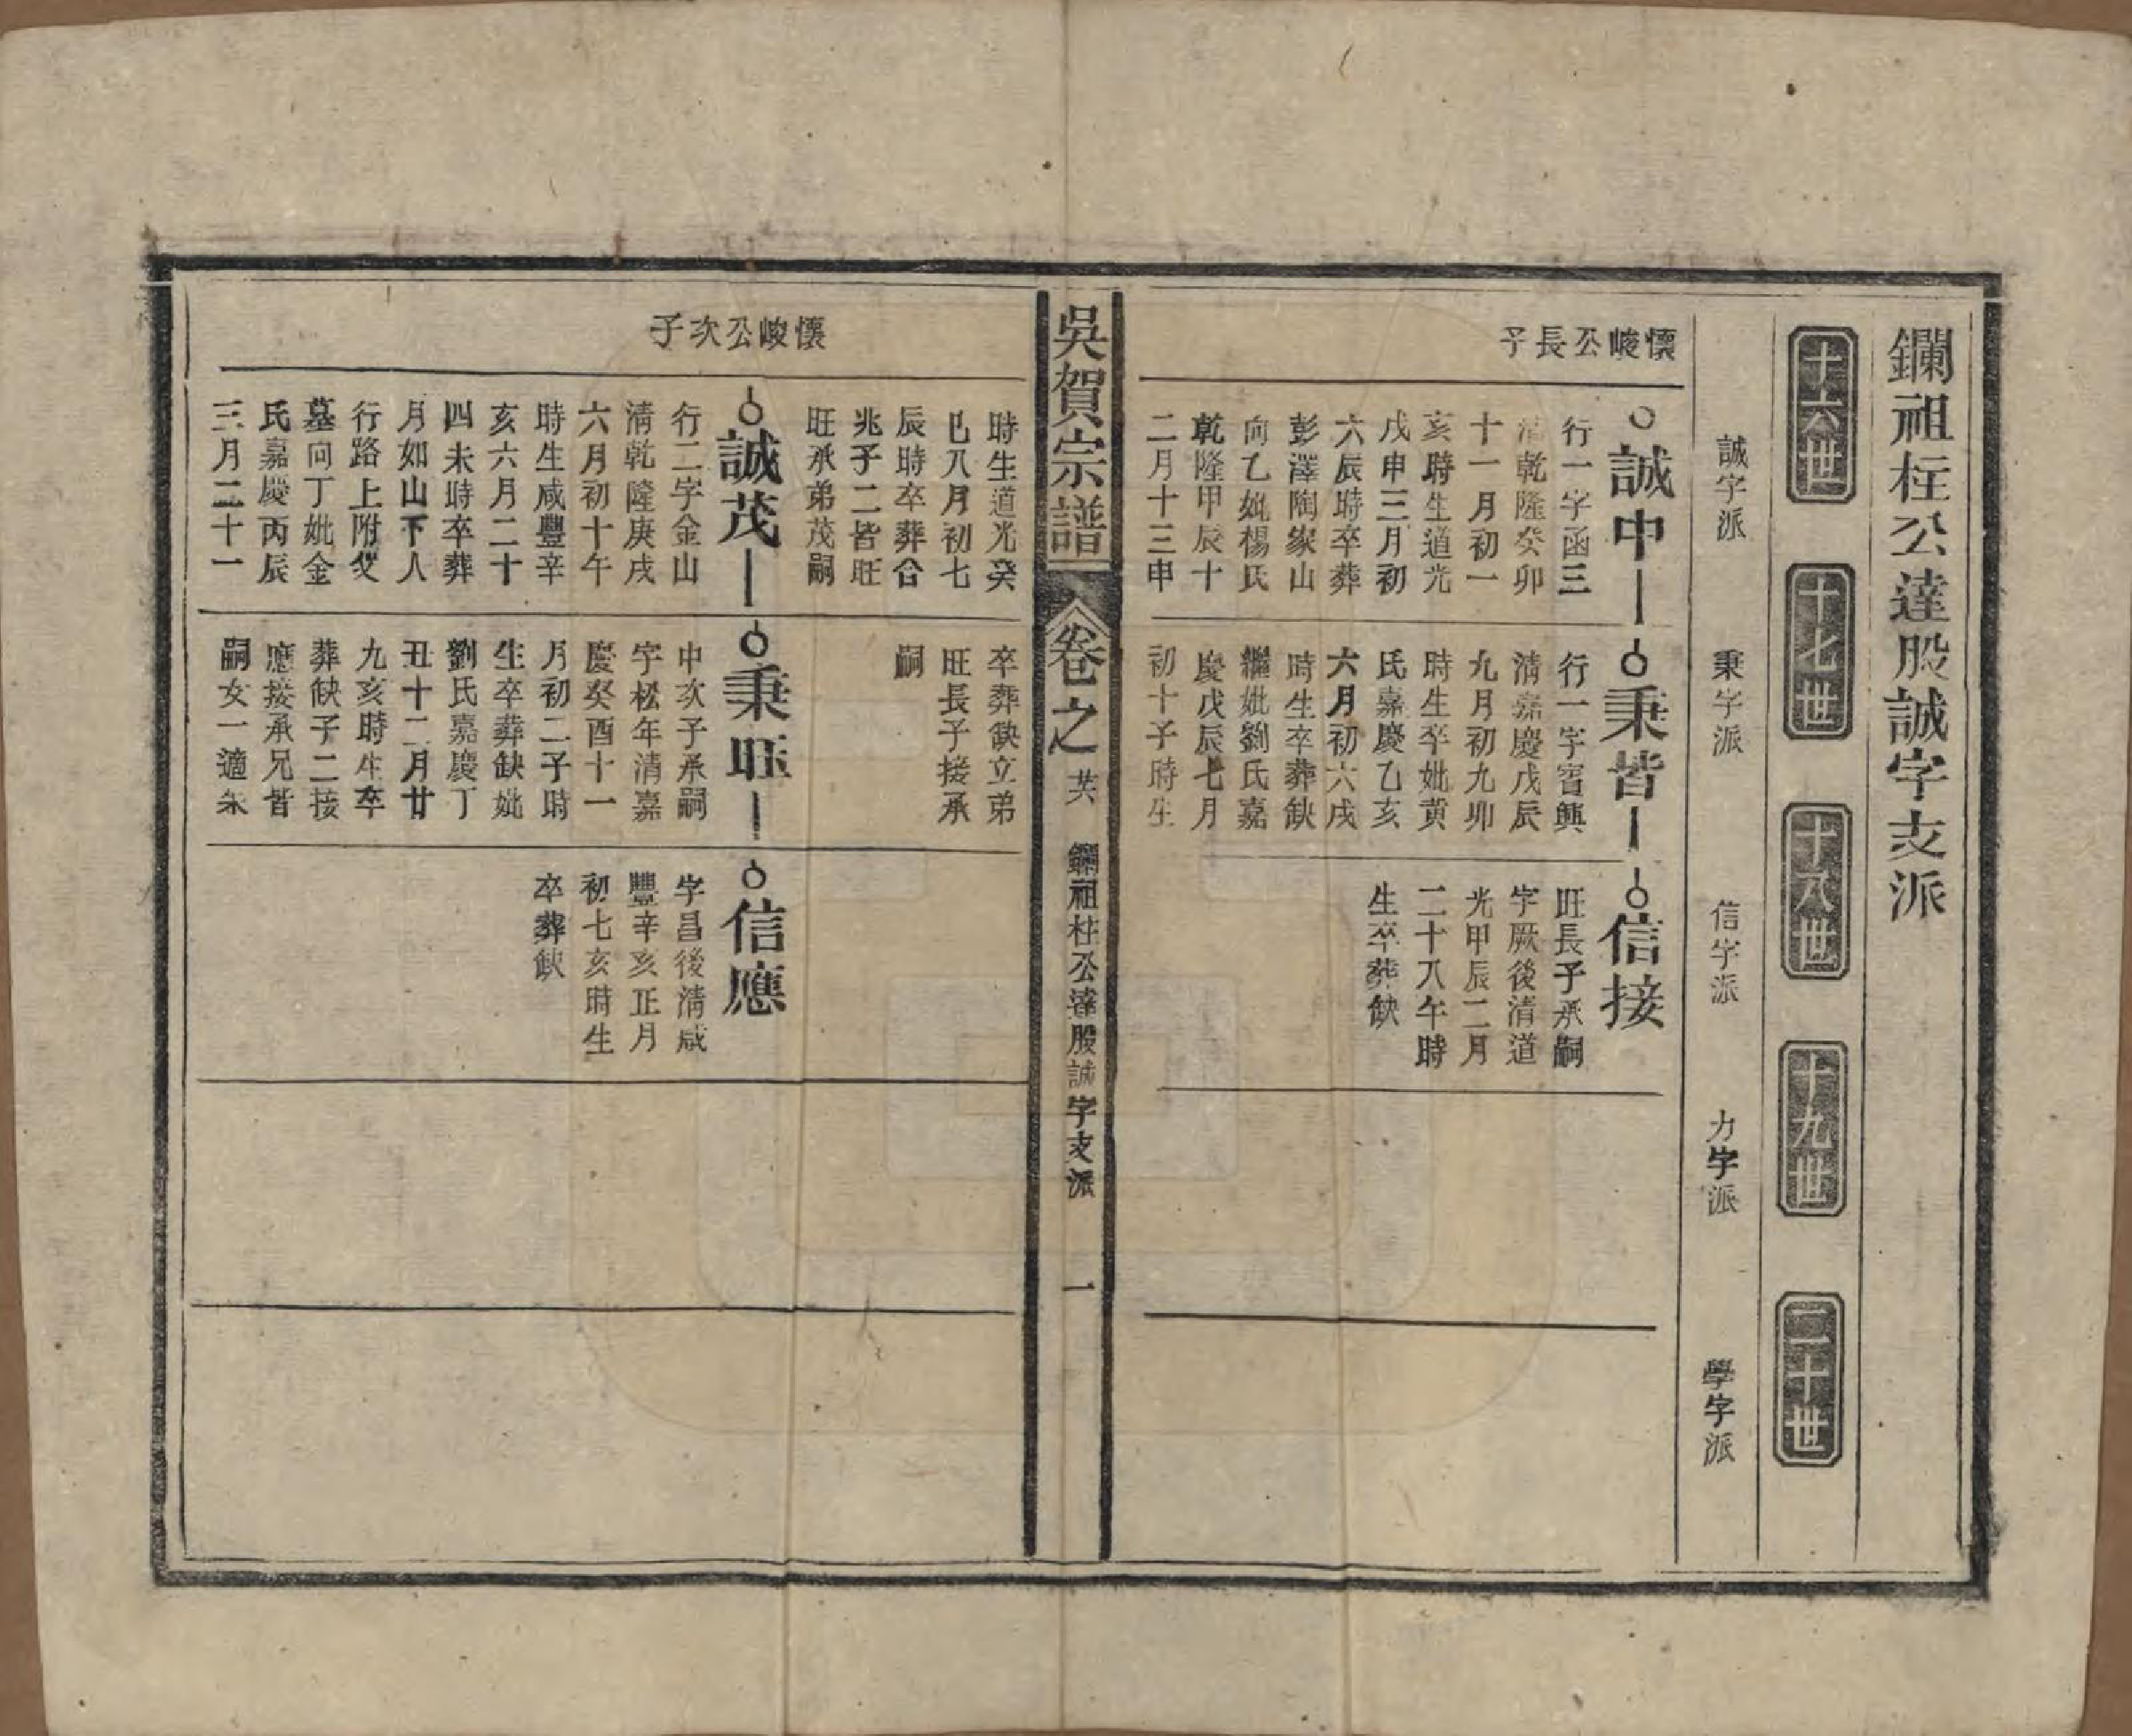 鑭祖柱公達股誠字支派
十六世
十七世
十八世
十九世
二十世
誠字派
秉字派
信字派
力字派
學字派
懷峻公長子
誠中
行一字函三
清乾隆癸卯
十一月初一
亥時生道光
戊申三月初
六辰時卒葬
彭澤陶家山
向乙妣楊氏
乾隆甲辰十
二月十三申
秉皆
行一字賓興
清嘉慶戊辰
九月初九卯
時生卒妣黄
氏嘉慶乙亥
六月初六戌
時生卒葬缺
繼妣劉氏嘉
慶戊辰七月
初十子時生
信接
旺長子承嗣
字厥後清道
光甲辰二月
二十八午時
生卒葬缺
吳賀宗譜
卷之共
鑭祖柱公達股誠字支派
一
時生道光癸
巳八月初七
辰時卒葬合
兆子二皆旺
旺承弟茂嗣
卒葬缺立弟
旺長子接承
嗣
懷峻公次子
誠茂
行二字金山
清乾隆庚戌
六月初十午
時生咸豐辛
亥六月二十
四未時卒葬
月如山下人
行路上附父
墓向丁妣金
氏嘉慶丙辰
三月二十一
秉旺
中次子承嗣
字松年清嘉
慶癸酉十一
月初二子時
生卒葬缺妣
劉氏嘉慶丁
丑十二月廿
九亥時生卒
葬缺子二接
應接承兄皆
嗣女一適朱
信應
字昌後清咸
豐辛亥正月
初七亥時生
卒葬缺